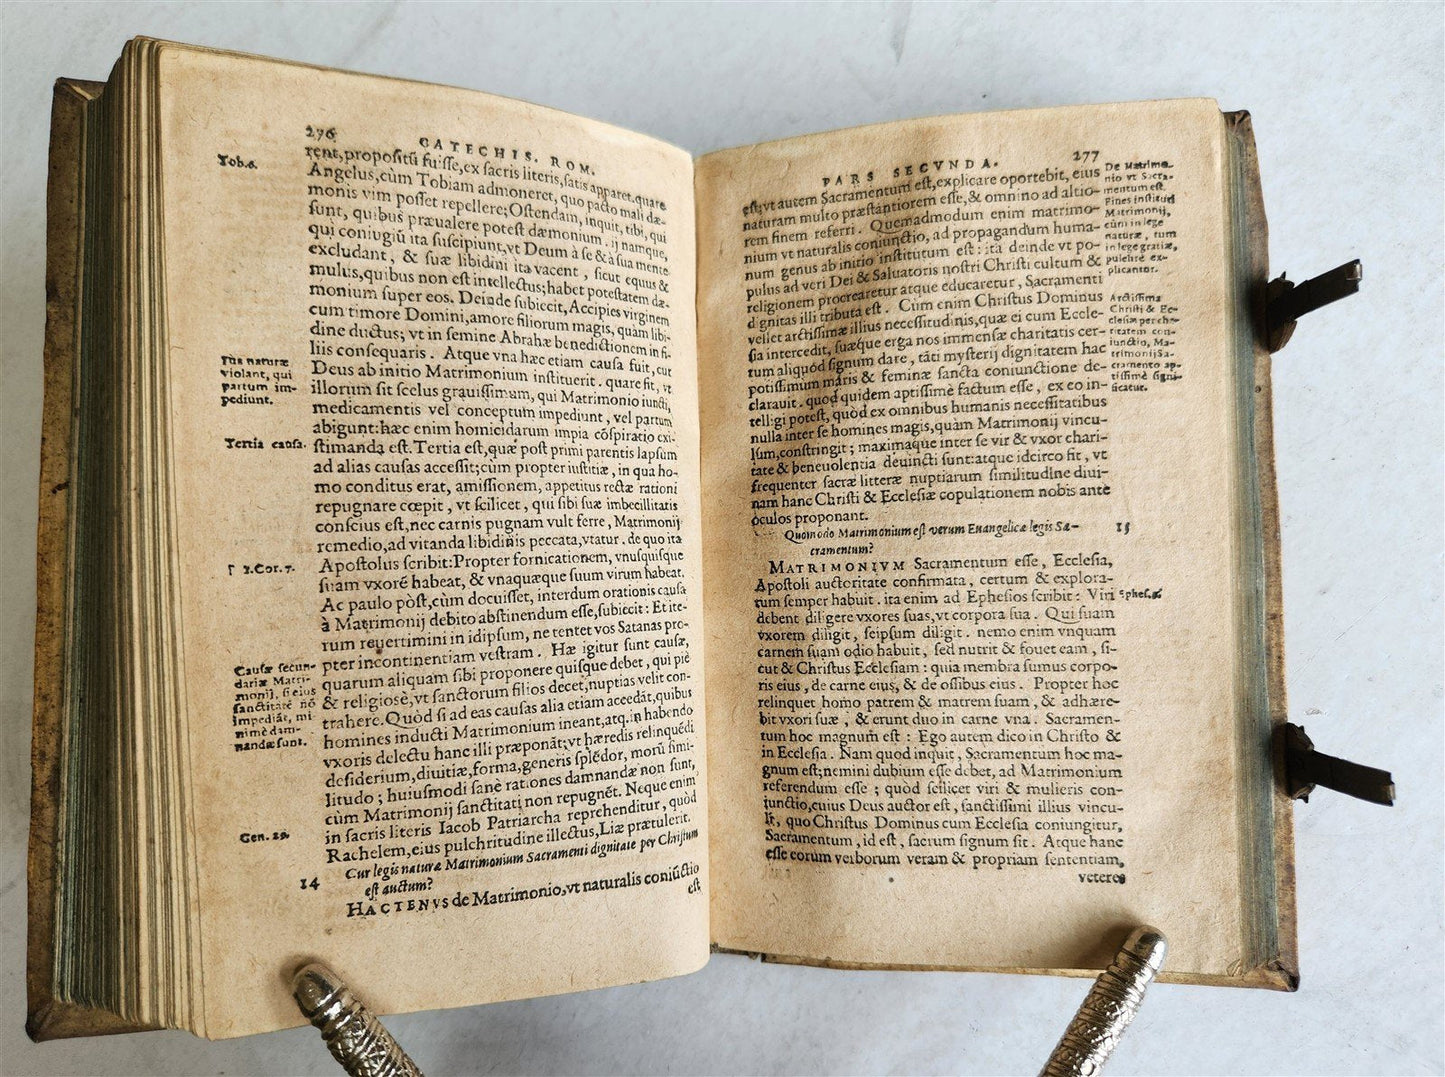 276 CATECHIS. ROM.
rent, propositū fuisse, ex sacris literis, satis apparet. quare
Tob. 6. Angelus, cùm Tobiam admoneret, quo pacto mali dæ-
monis vim posset repellere; Ostendam, inquit, tibi, qui
sunt, quibus præualere potest dæmonium. ij namque,
qui coniugiū ita suscipiunt, vt Deum à se & à sua mente
excludant, & suæ libidini ita vacent, sicut equus &
mulus, quibus non est intellectus; habet potestatem dæ-
monium super eos. Deinde subiecit, Accipies virginem
cum timore Domini, amore filiorum magis, quàm libi-
dine ductus; vt in semine Abrahæ benedictionem in fi-
liis consequaris. Atque vna hæc etiam causa fuit, cur
Deus ab initio Matrimonium instituerit. quare fit, vt
illorum sit scelus grauissimum, qui Matrimonio iuncti,
medicamentis vel conceptum impediunt, vel partum
abigunt: hæc enim homicidarum impia cōspiratio exi-
violant, qui
partum im-
pediunt.
Tertia causa. stimanda est. Tertia est, quæ post primi parentis lapsum
ad alias causas accessit; cùm propter iustitiæ, in qua ho-
mo conditus erat, amissionem, appetitus rectæ rationi
repugnare cœpit, vt scilicet, qui sibi suæ imbecillitatis
conscius est, nec carnis pugnam vult ferre, Matrimonij
remedio, ad vitanda libidinis peccata, vtatur. de quo ita
1. Cor. 7. Apostolus scribit: Propter fornicationem, vnusquisque
suam vxorē habeat, & vnaquæque suum virum habeat.
Ac paulo pòst, cùm docuisset, interdum orationis causa
à Matrimonij debito abstinendum esse, subiecit: Et ite-
rum reuertimini in idipsum, ne tentet vos Satanas pro-
pter incontinentiam vestram. Hæ igitur sunt causæ,
quarum aliquam sibi proponere quisque debet, qui piè
& religiosè, vt sanctorum filios decet, nuptias velit con-
trahere. Quòd si ad eas causas alia etiam accedāt, quibus
homines inducti Matrimonium ineant, atq. in habendo
vxoris delectu hanc illi præponāt; vt hæredis relinquēdi
desiderium, diuitiæ, forma, generis splēdor, morū simi-
litudo; huiusmodi sanè rationes damnandæ non sunt,
cùm Matrimonij sanctitati non repugnēt. Neque enim
in sacris literis Iacob Patriarcha reprehenditur, quòd
Rachelem, eius pulchritudine illectus, Liæ prætulerit.
Causæ secun-
dariæ Matri-
monij, si eius
sanctitatē nō
impediāt, mi-
nimè dam-
nandæ sunt.
Gen. 29.
Cur legis naturæ Matrimonium Sacramenti dignitate per Christum
14 est auctum?
HACTENVS de Matrimonio, vt naturalis coniūctio
est,
PARS SECVNDA. 277
est; vt autem Sacramentum est, explicare oportebit, eius
naturam multo præstantiorem esse, & omnino ad altio-
rem finem referri. Quemadmodum enim matrimo-
nium vt naturalis coniunctio, ad propagandum huma-
num genus ab initio institutum est: ita deinde vt po-
pulus ad veri Dei & Saluatoris nostri Christi cultum &
religionem procrearetur atque educaretur, Sacramenti
dignitas illi tributa est. Cùm enim Christus Dominus
vellet arctissimæ illius necessitudinis, quæ ei cum Eccle-
sia intercedit, suæque erga nos immensæ charitatis cer-
tum aliquod signum dare, tāti mysterij dignitatem hac
potissimum maris & feminæ sancta coniunctione de-
clarauit. quod quidem aptissimè factum esse, ex eo in-
telligi potest, quòd ex omnibus humanis necessitatibus
nulla inter se homines magis, quàm Matrimonij vincu-
lum, constringit; maximaque inter se vir & vxor chari-
tate & beneuolentia deuincti sunt: atque idcirco fit, vt
frequenter sacræ litteræ nuptiarum similitudine diui-
nam hanc Christi & Ecclesiæ copulationem nobis ante
oculos proponant.
De Matrimo-
nio vt Sacra-
mentum est.
Fines instituti
Matrimonij,
cùm in lege
naturæ, tum
in lege gratiæ,
pulchrè ex-
plicantur.
Arctissima
Christi & Ec-
clesiæ per cha-
ritatem con-
iunctio, Ma-
trimonij Sa-
cramento ap-
tissimè signi-
ficatur.
Quomodo Matrimonium est verum Euangelicæ legis Sa- 15
cramentum?
MATRIMONIVM Sacramentum esse, Ecclesia,
Apostoli auctoritate confirmata, certum & explora-
tum semper habuit. ita enim ad Ephesios scribit: Viri Ephes. 5.
debent diligere vxores suas, vt corpora sua. Qui suam
vxorem diligit, seipsum diligit. nemo enim vnquam
carnem suam odio habuit, sed nutrit & fouet eam, si-
cut & Christus Ecclesiam: quia membra sumus corpo-
ris eius, de carne eius, & de ossibus eius. Propter hoc
relinquet homo patrem & matrem suam, & adhære-
bit vxori suæ, & erunt duo in carne vna. Sacramen-
tum hoc magnum est: Ego autem dico in Christo &
in Ecclesia. Nam quod inquit, Sacramentum hoc ma-
gnum est; nemini dubium esse debet, ad Matrimonium
referendum esse; quòd scilicet viri & mulieris con-
iunctio, cuius Deus auctor est, sanctissimi illius vincu-
li, quo Christus Dominus cum Ecclesia coniungitur,
Sacramentum, id est, sacrum signum sit. Atque hanc
esse eorum verborum veram & propriam sententiam,
veteres